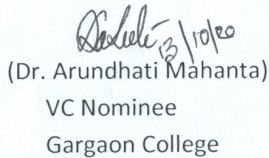 13/10/20
(Dr. Arundhati Mahanta)
VC Nominee
Gargaon College